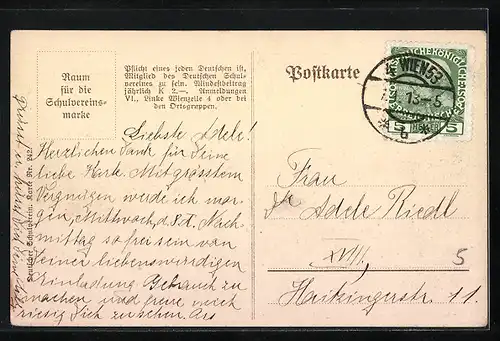 Raum
für die
Schulvereins-
marke
Pflicht eines jeden Deutschen ist,
Mitglied des Deutschen Schul-
vereines zu sein. Mindestbeitrag
jährlich K 2.—. Anmeldungen
VI., Linke Wienzeile 4 oder bei
den Ortsgruppen.
Liebste Adele!
Herzlichen Dank für Deine
liebe Karte. Mit grösstem
Vergnügen werde ich mor-
gen, Mittwoch, d. 8. d. Nach-
mittag so frei sein von
Deiner liebenswürdigen
Einladung Gebrauch zu
machen und freue mich
riesig Dich zu sehen.
Deutscher Schulverein. Karte Nr. 242.
Postkarte
WIEN 53
13-5
5 5
Frau
Adele Riedl
XVIII,
Haitzingerstr. 11.
5